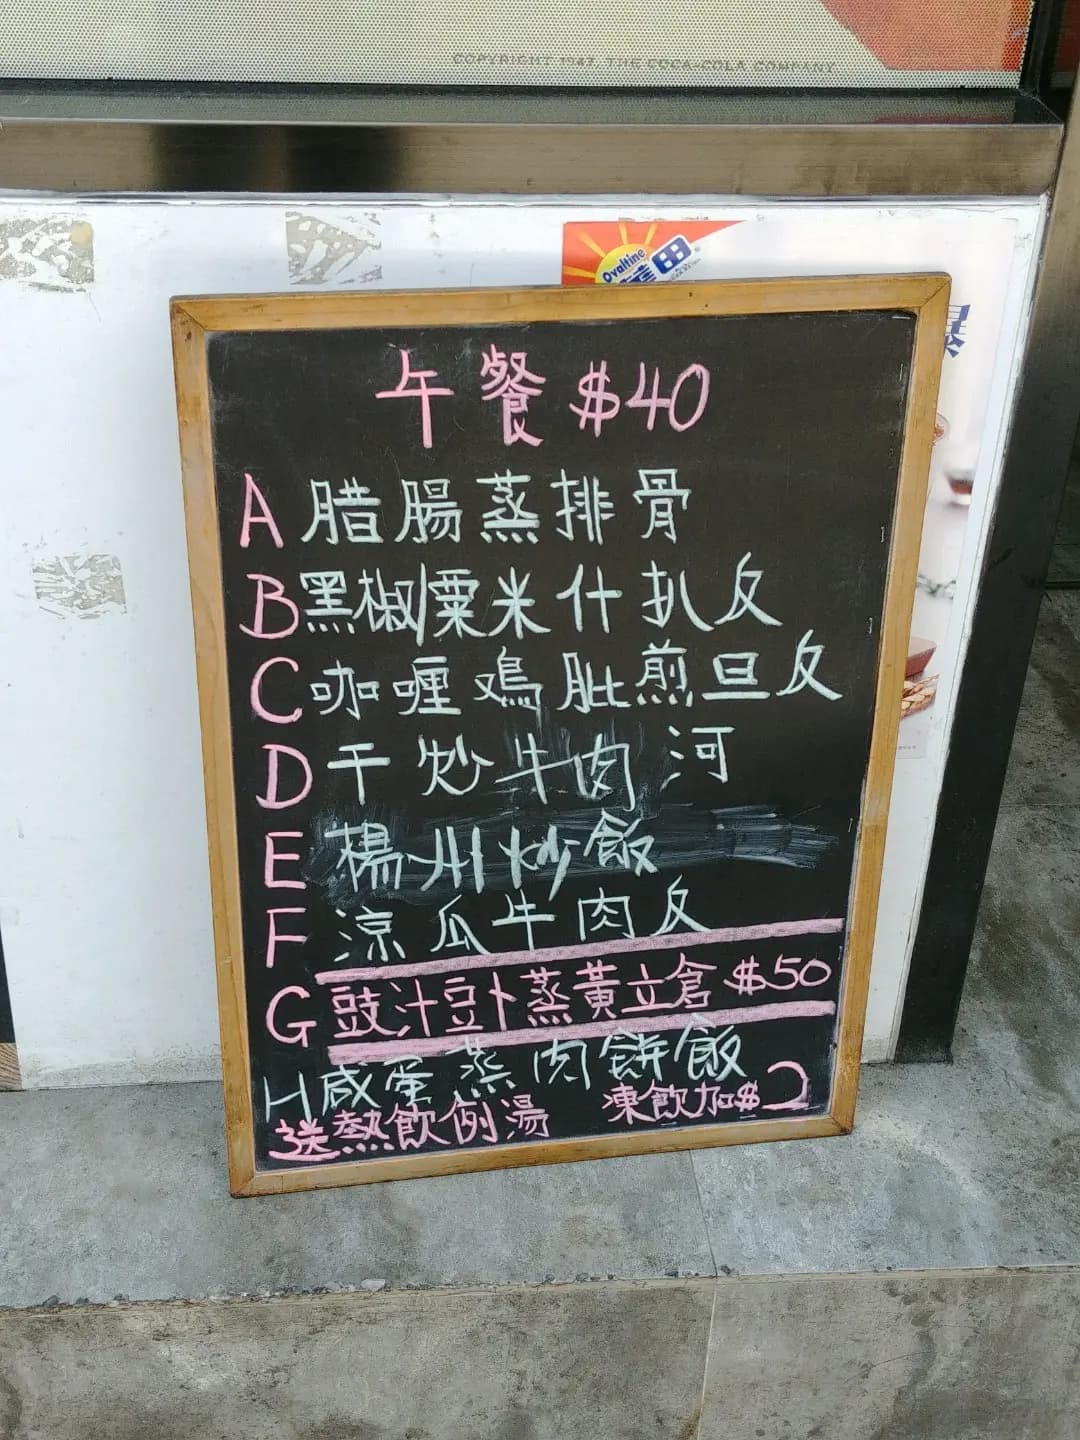 COPYRIGHT 1947 THE COCA-COLA COMPANY
Ovaltine
田
午餐 $40
A 腊腸蒸排骨
B 黑椒粟米什扒反
C 咖喱鳮肶煎旦反
D 干炒牛肉河
E 楊州炒飯
F 涼瓜牛肉反
G 豉汁豆卜蒸黃立倉 $50
H 咸蛋蒸肉餅飯
送熱飲例湯 凍飲加$2